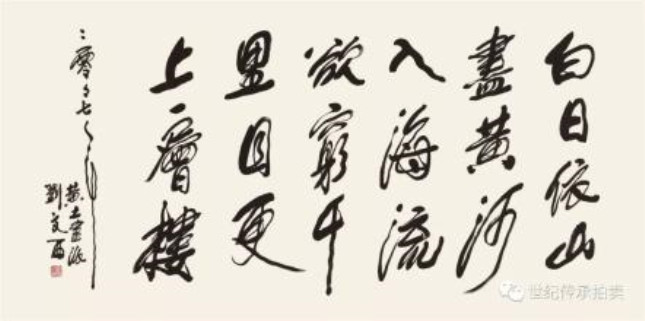 白日依山
盡黄河
入海流
欲窮千
里目更
上一層樓
二零零七年
黄土畫派
劉文西
世纪传承拍卖